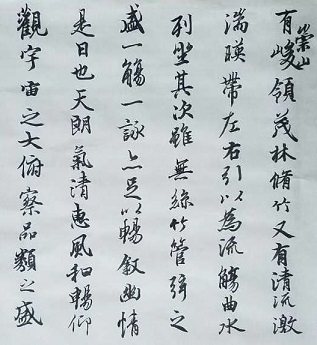 有崇山峻領茂林脩竹又有清流激
湍暎帶左右引以為流觴曲水
列坐其次雖無絲竹管弦之
盛一觴一詠亦足以暢敘幽情
是日也天朗氣清惠風和暢仰
觀宇宙之大俯察品類之盛